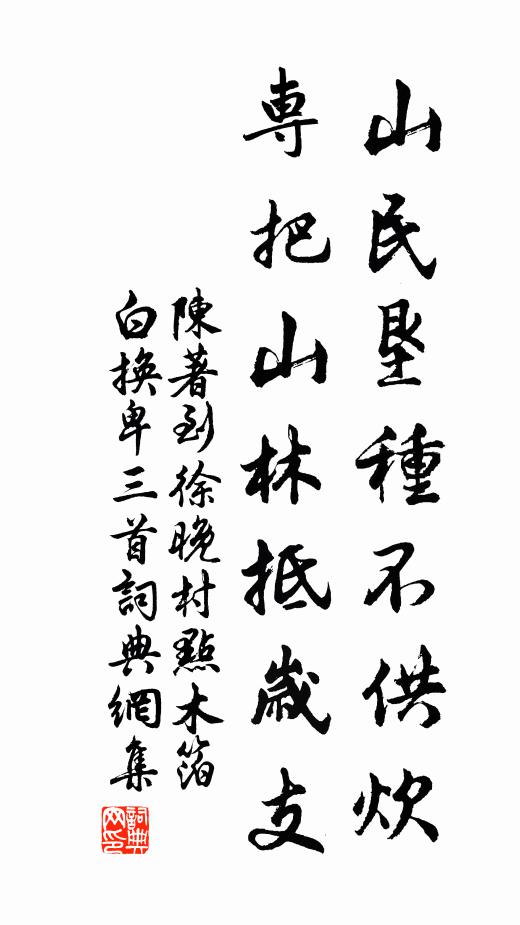 山民垦種不供炊
専把山林抵歲支
陳著到徐晚村點木箔
白換卑三首詞典網集
詞典網印